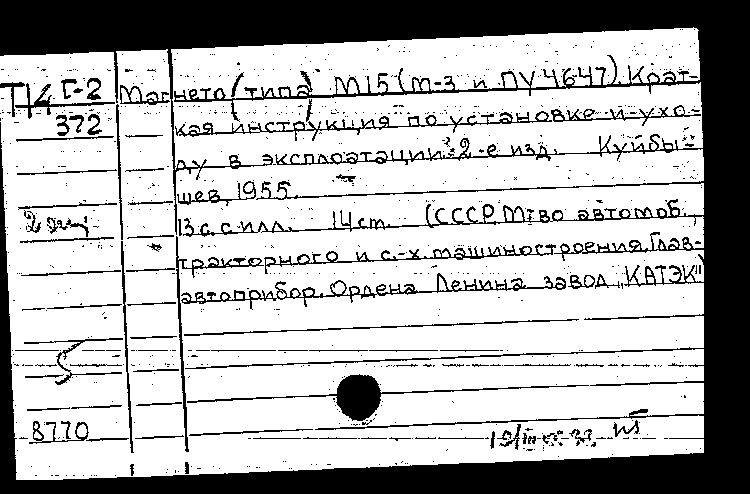 П4 Г-2
372
Магнето (типа) М15 (М-3 и ПУ 4647). Крат-
кая инструкция по установке и ухо-
ду в эксплоатации. 2-е изд. Куйбы-
шев, 1955.
13 с. с илл. 14 ст. (СССР. М-во автомоб.,
тракторного и с.-х. машиностроения. Глав-
автоприбор. Ордена Ленина завод „КАТЭК")
2 экз
8770